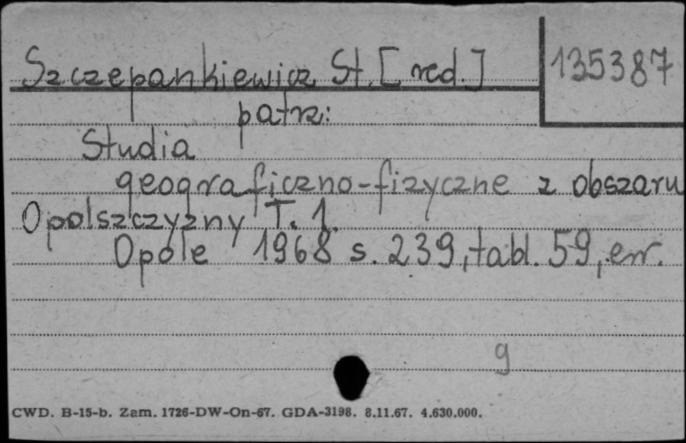 Szczepankiewicz St. [red.] 135387
patrz:
Studia
geograficzno-fizyczne z obszaru
Opolszczyzny T. 1.
Opole 1968 s. 239, tabl. 59, err.
g
CWD. B-15-b. Zam. 1726-DW-On-67. GDA-3198. 8.11.67. 4.630.000.